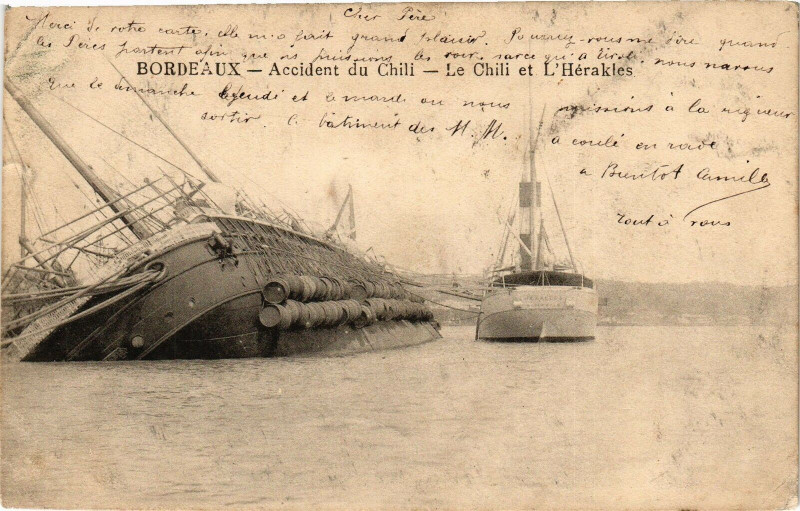 Cher Père
Merci de votre carte, elle m'a fait grand plaisir. Pourriez-vous me dire quand
les Pères partent afin que ns puissions les voir, parce qu'à nous n'avons
BORDEAUX — Accident du Chili — Le Chili et L'Hérakles
que le dimanche le jeudi et le mardi où nous puissions à la rigueur
sortir. le bâtiment des M. M. a coulé en rade
a Bientot Camille
tout à vous